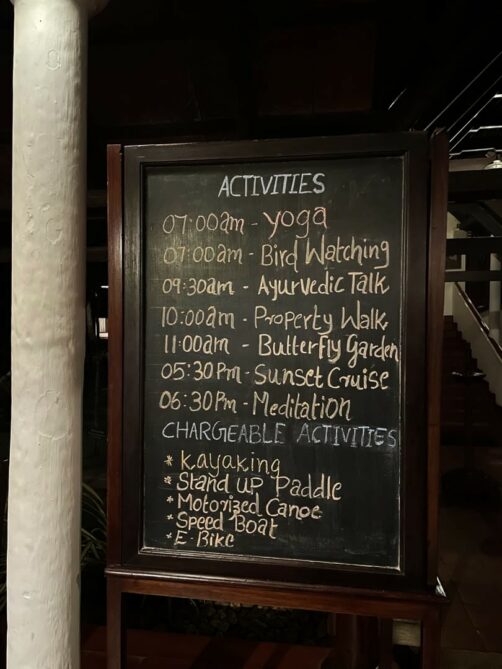 ACTIVITIES
07:00am - yoga
07:00am - Bird Watching
09:30am - Ayurvedic Talk
10:00am - Property Walk
11:00am - Butterfly Garden
05:30Pm - Sunset Cruise
06:30Pm - Meditation
CHARGEABLE ACTIVITIES
* Kayaking
* Stand up Paddle
* Motorized Canoe
* Speed Boat
* E-Bike